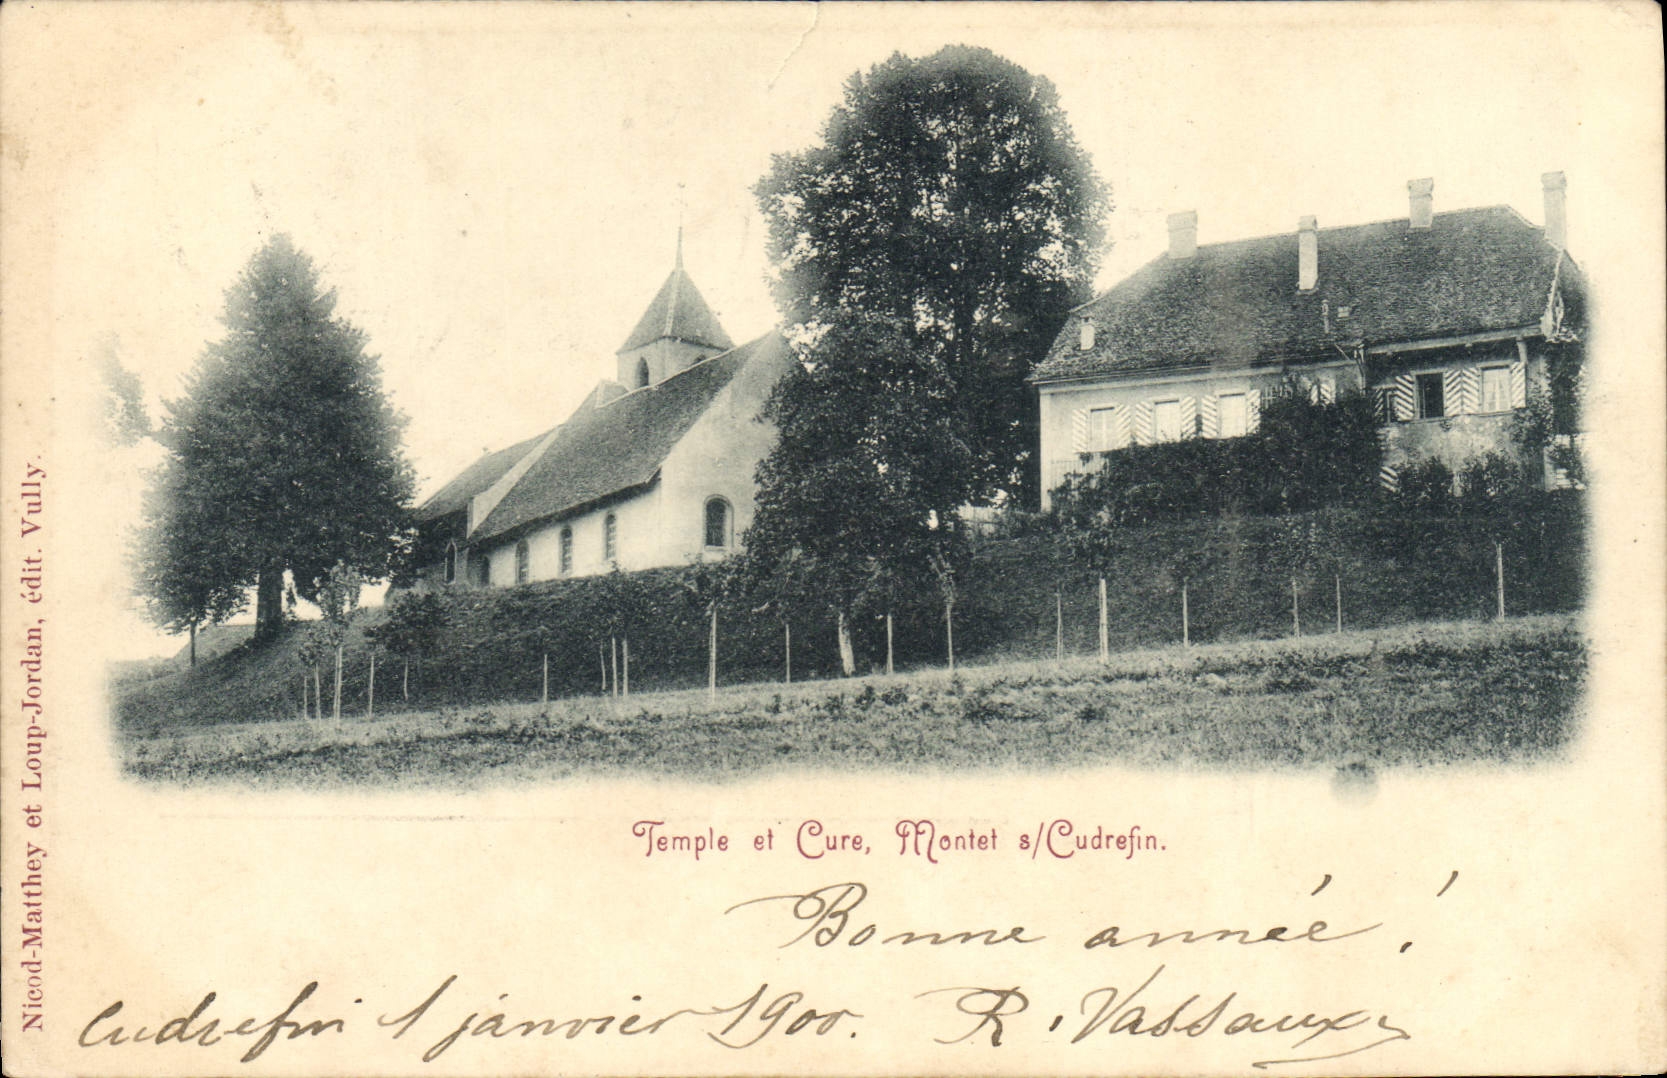 Nicod-Matthey et Loup-Jordan, édit. Vully.
Temple et Cure, Montet s/Cudrefin.
Bonne année !
Cudrefin 1 janvier 1900. R. Vassaux